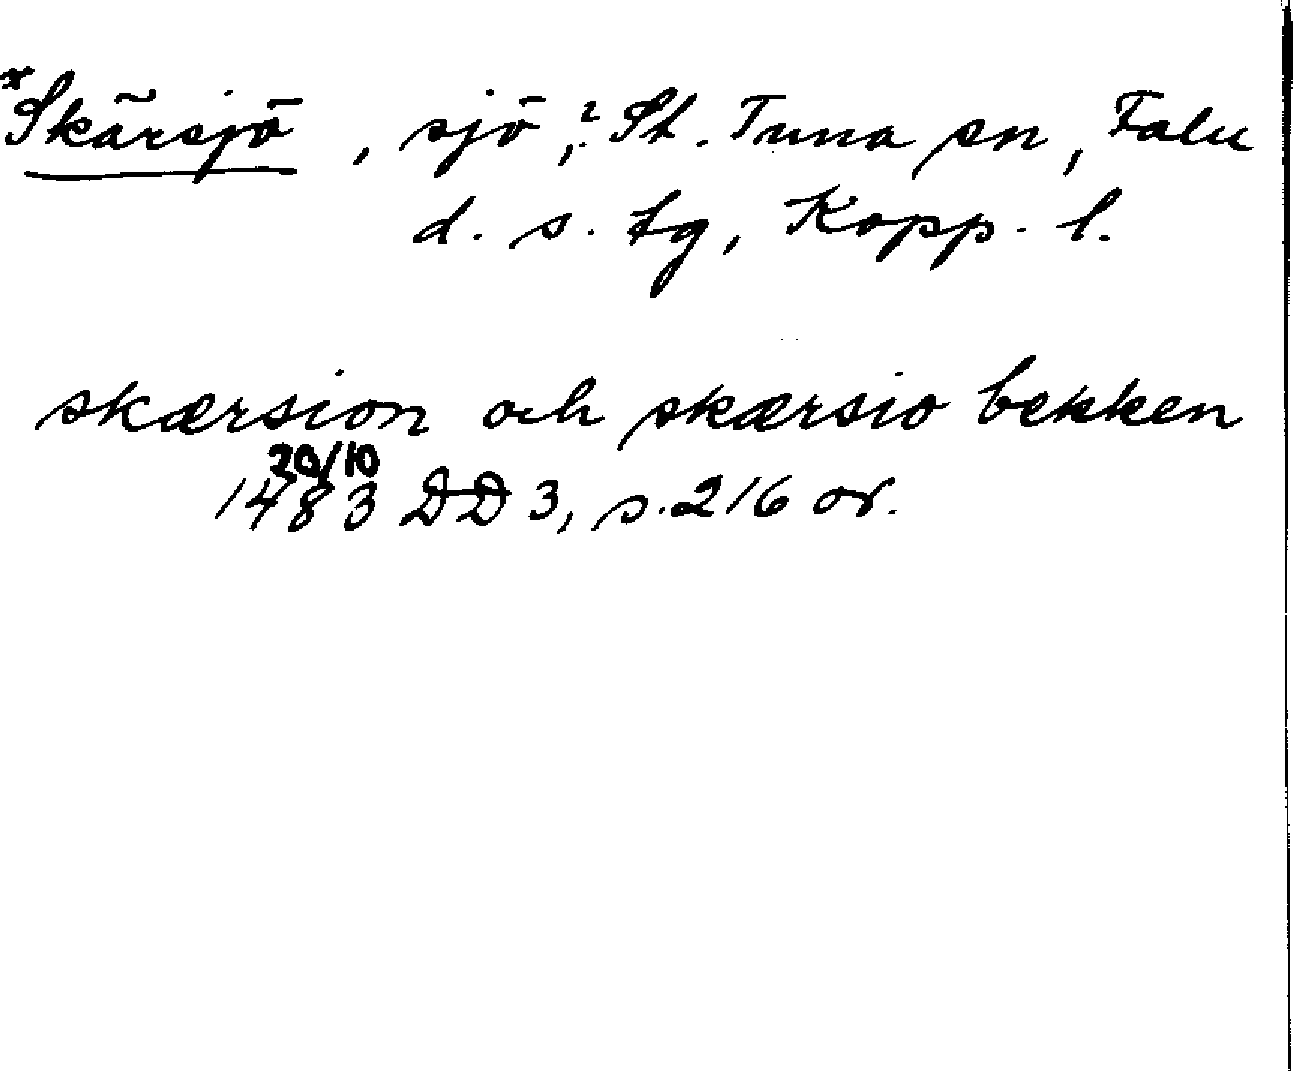 *Skärsjö, sjö,? St. Tuna sn, Falu
d. s. tg, Kopp. l.
skærsion och skærsio bekken
20/10
1483 DD 3, s. 216 or.